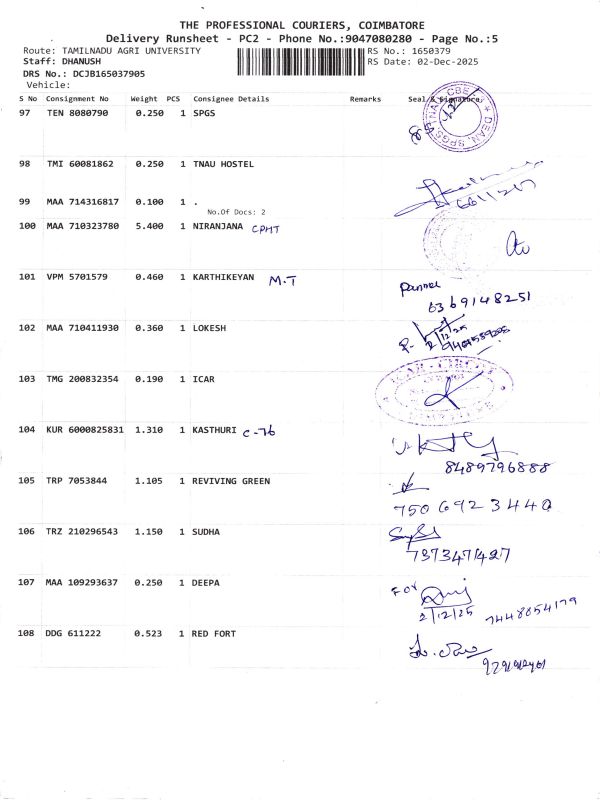 THE PROFESSIONAL COURIERS, COIMBATORE
Delivery Runsheet - PC2 - Phone No.:9047080280 - Page No.:5
Route: TAMILNADU AGRI UNIVERSITY RS No.: 1650379
Staff: DHANUSH RS Date: 02-Dec-2025
DRS No.: DCJB165037905
Vehicle:
S No Consignment No Weight PCS Consignee Details Remarks Seal & Signature
97 TEN 8080790 0.250 1 SPGS
98 TMI 60081862 0.250 1 TNAU HOSTEL
99 MAA 714316817 0.100 1 .
No.Of Docs: 2
100 MAA 710323780 5.400 1 NIRANJANA CPMT
101 VPM 5701579 0.460 1 KARTHIKEYAN M.T
6369148251
102 MAA 710411930 0.360 1 LOKESH
2/12/25
103 TMG 200832354 0.190 1 ICAR
104 KUR 6000825831 1.310 1 KASTHURI C-76
8489796888
105 TRP 7053844 1.105 1 REVIVING GREEN
750 692 3440
106 TRZ 210296543 1.150 1 SUDHA
7373471427
107 MAA 109293637 0.250 1 DEEPA
For
2/12/25 7448854179
108 DDG 611222 0.523 1 RED FORT